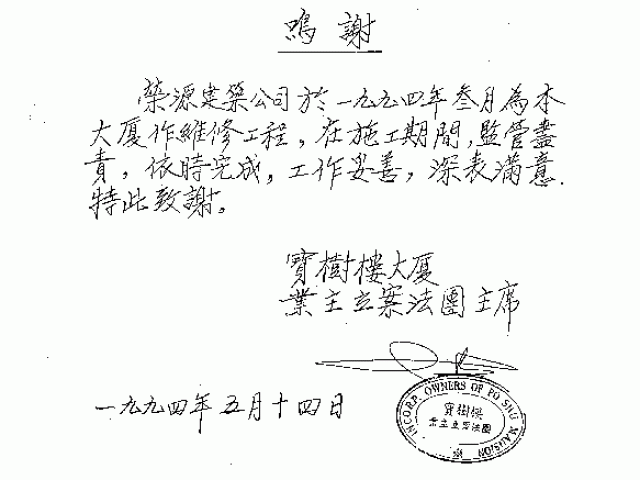 鳴謝
榮源建築公司於一九九四年叁月為本
大廈作維修工程，在施工期間，監管盡
責，依時完成，工作妥善，深表滿意．
特此致謝。
寶樹樓大廈
業主立案法團主席
INCORP. OWNERS OF PO SHU MANSION
寶樹樓
業主立案法團
一九九四年五月十四日